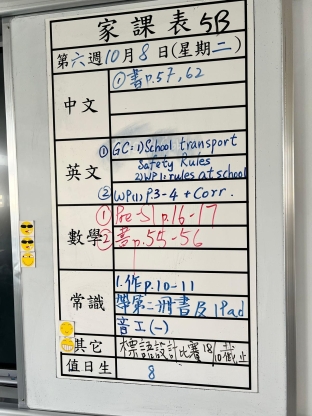 家課表 5B
第六週10月8日(星期二)
中文
①書p.57,62
英文
① GC: 1)School transport
Safety Rules
2)WP1: rules at school
② WP(1) P.3-4 + Corr.
數學
① Pre-S1 p.16-17
② 書p.55-56
常識
1.作p.10-11
帶第二冊書及iPad
音工(一)
其它
標語設計比賽 18/10截止
值日生
8